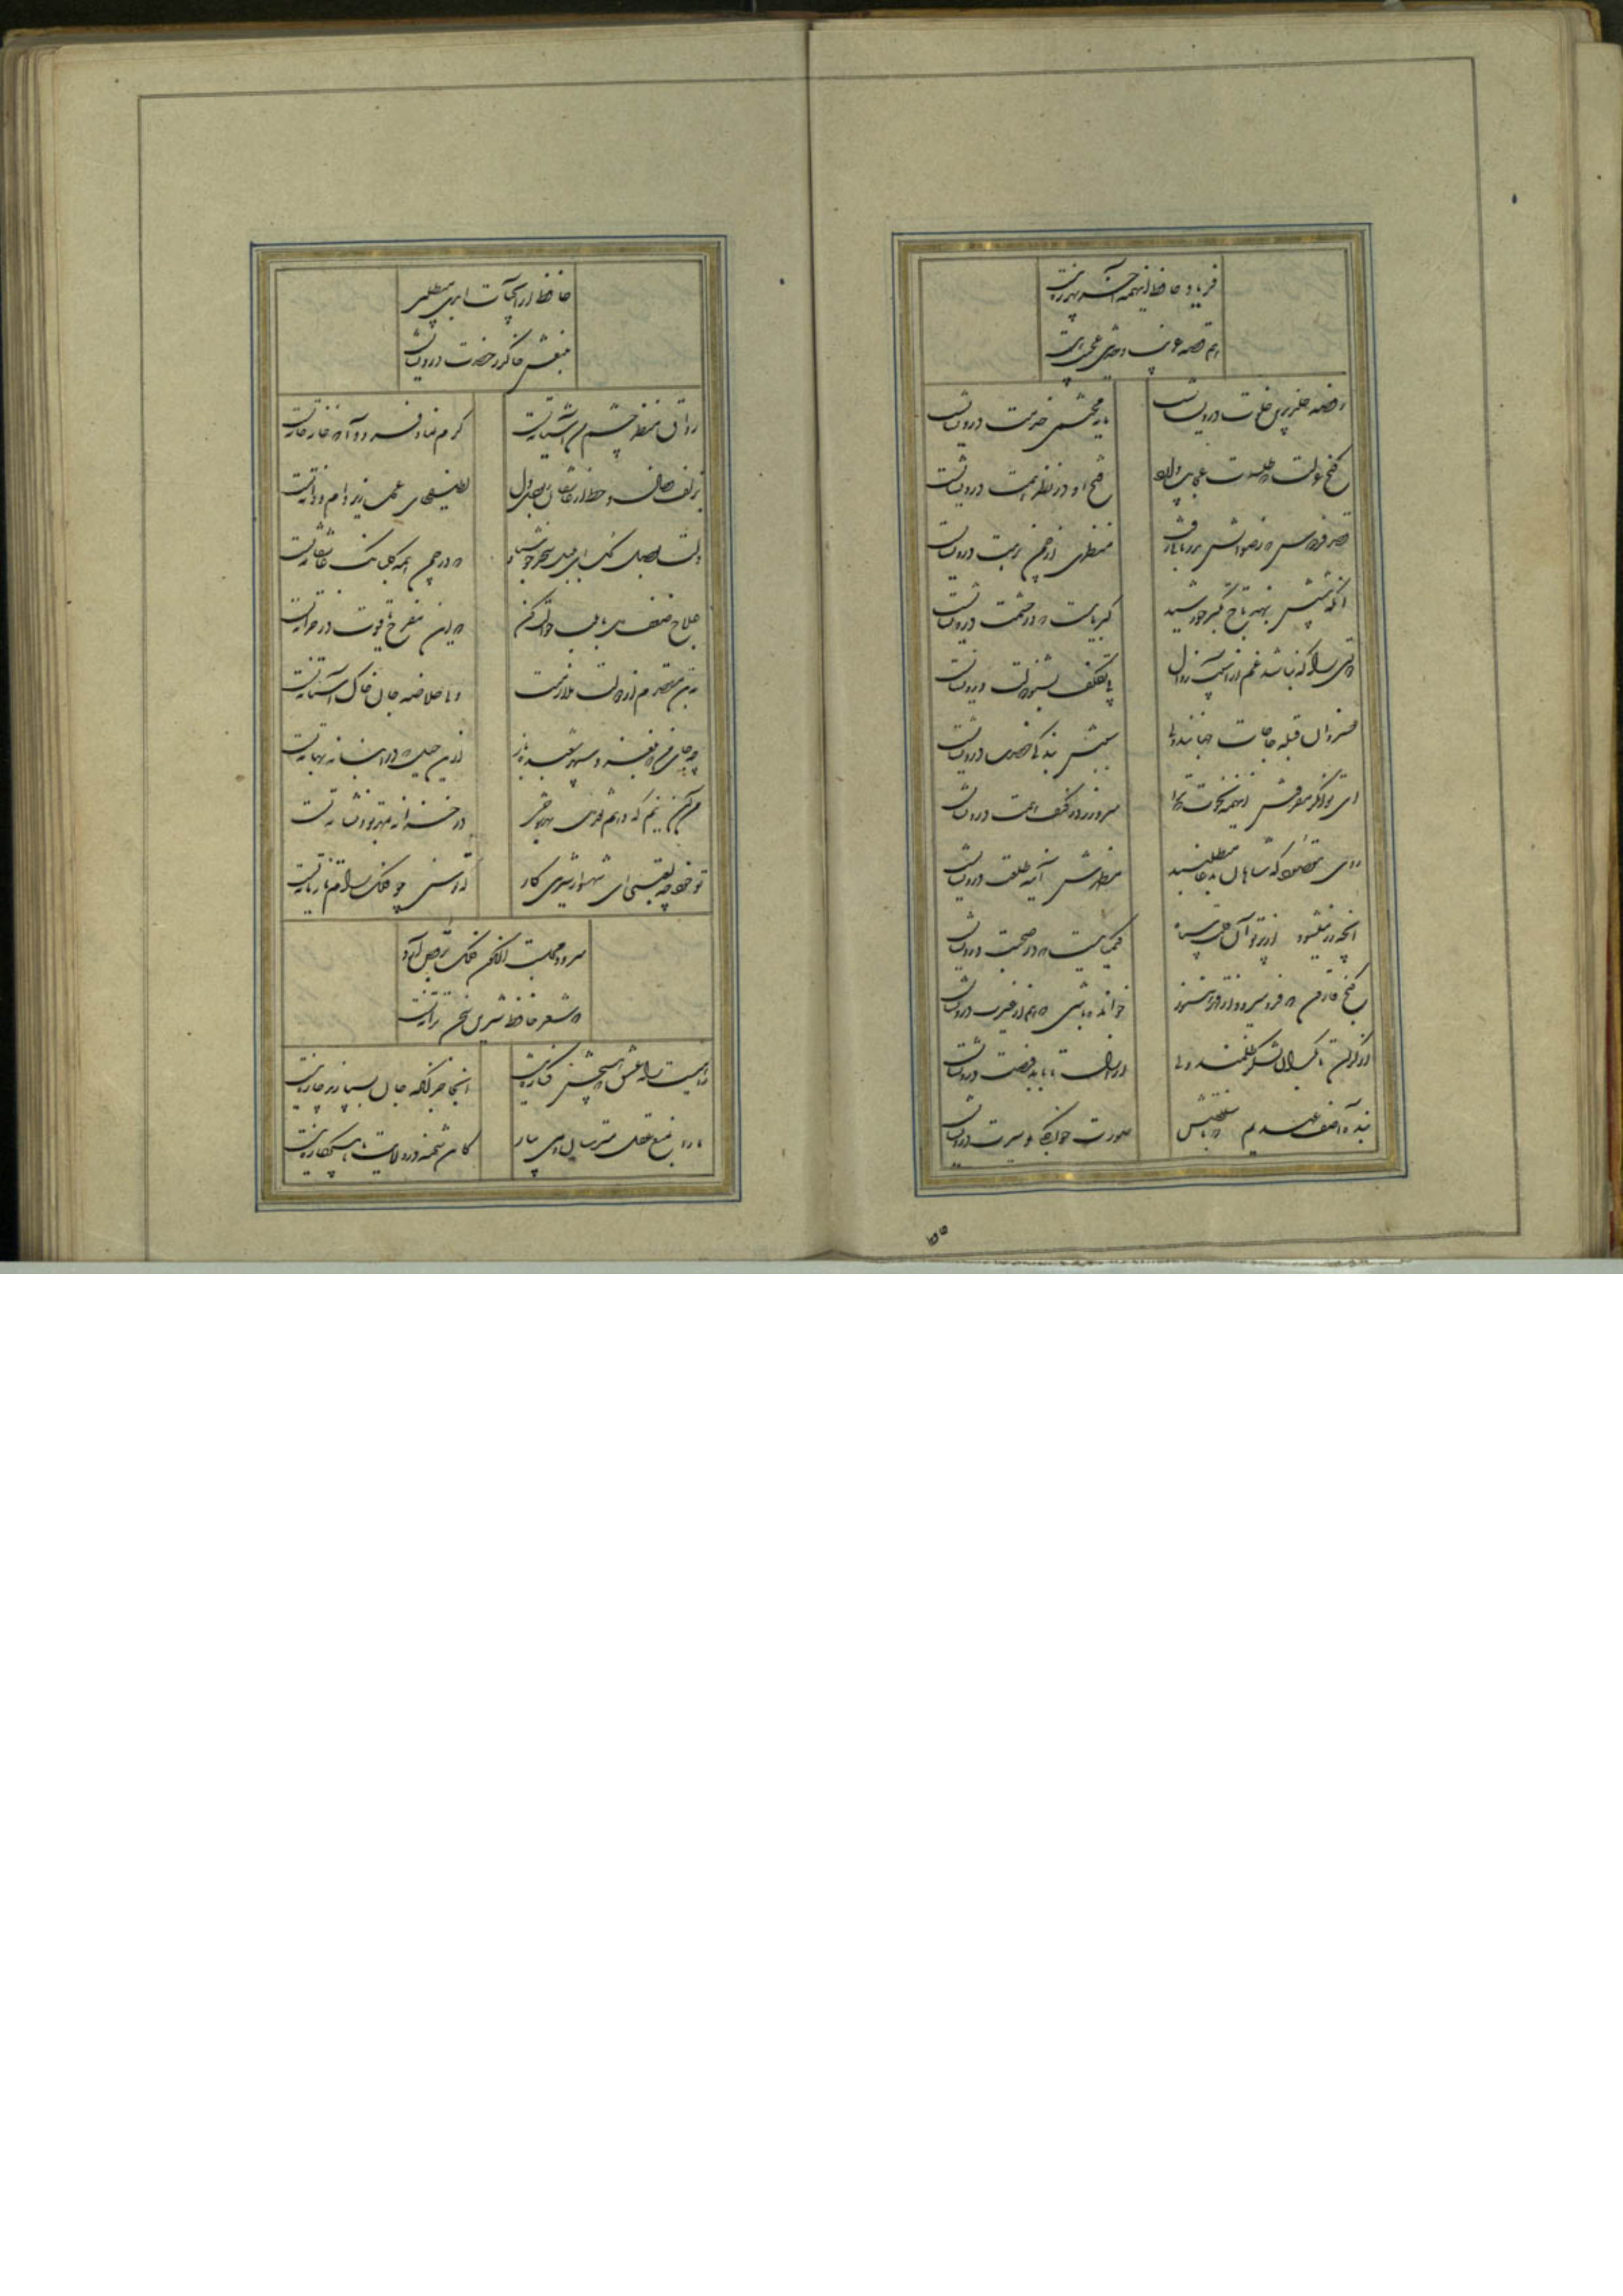 فریاد حافظ اینهمه آخر بهرزه نیست
هم قصه غریب و حدیثی عجیب هست
روضه خلد برین خلوت درویشانست
مایه محتشمی خدمت درویشانست
کنج عزلت که طلسمات عجایب دارد
فتح او در نظر همت درویشانست
قصر فردوس که رضوانش بدربانی رفت
منظری از چمن نزهت درویشانست
آنکه پیشش بنهد تاج تکبر خورشید
کبریاییست که در حشمت درویشانست
دولتی را که نباشد غم از آسیب زوال
بی تکلف بشنو دولت درویشانست
خسروان قبله حاجات جهانند ولی
سببش بندگی حضرت درویشانست
ای توانگر مفروش اینهمه نخوت که ترا
سر و زر در کنف همت درویشانست
روی مقصود که شاهان بدعا میطلبند
مظهرش آینه طلعت درویشانست
آنچه زر میشود از پرتو آن قلب سیاه
کیمیاییست که در صحبت درویشانست
گنج قارون که فرو میرود از قهر هنوز
خوانده باشی که هم از غیرت درویشانست
از کران تا بکران لشکر ظلمست ولی
از ازل تا بابد فرصت درویشانست
بنده آصف عهدیم که در سلطنتش
صورت خواجگی و سیرت درویشانست
حافظ ار آب حیات ابدی میطلبی
منبعش خاک در حضرت درویشانست
رواق منظر چشم من آشیانه تست
کرم نما و فرود آ که خانه خانه تست
بزلف و خال و خط از عاشقان ربودی دل
لطیفهای عجب زیر دام و دانه تست
دلت بوصل گل ای بلبل سحر خوش باد
که در چمن همه گلبانگ عاشقانه تست
علاج ضعف دل ما بلب حوالت کن
که این مفرح یاقوت در خزانه تست
به تن مقصرم از دولت ملازمتت
ولی خلاصه جان خاک آستانه تست
چه جای من که بلغزد سپهر شعبده باز
ازین حیل که در انبانه بهانه تست
من آن نیم که دهم نقد دل بهر شوخی
در خزانه بمهر تو و نشانه تست
تو خود چه لعبتی ای شهسوار شیرین کار
که توسنی چو فلک رام تازیانه تست
سرود مجلست اکنون فلک برقص آرد
که شعر حافظ شیرین سخن ترانه تست
راهیست راه عشق که هیچش کناره نیست
آنجا جز آنکه جان بسپارند چاره نیست
ما را بمنع عقل مترسان و می بیار
کان شحنه در ولایت ما هیچ کاره نیست